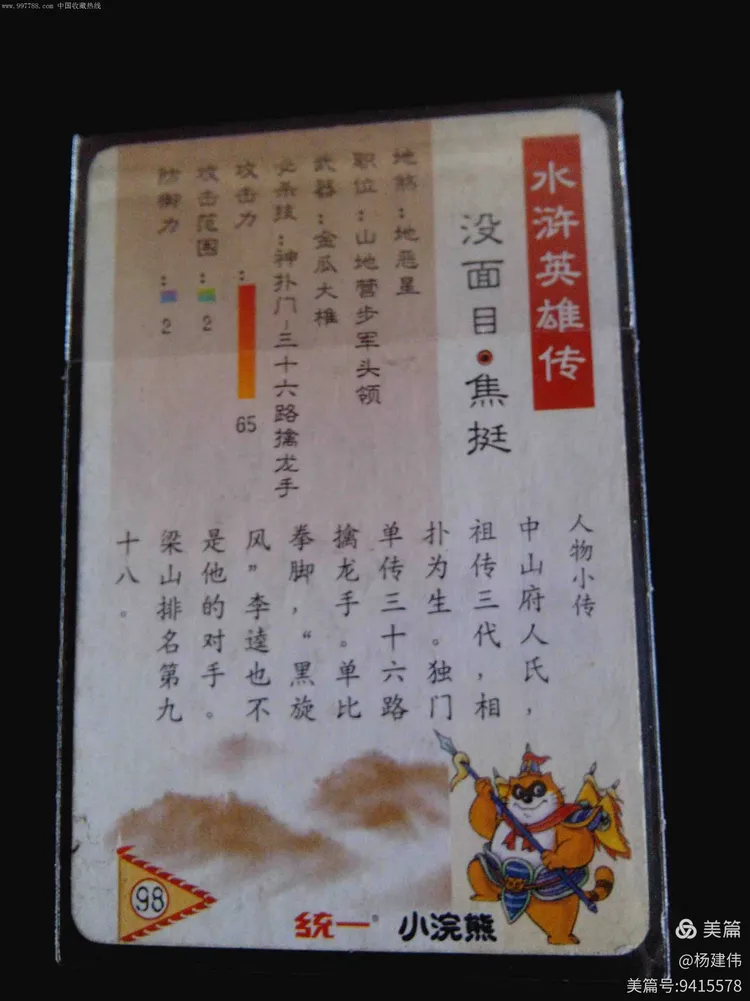 www.997788.com 中国收藏热线
水浒英雄传
没面目·焦挺
地煞：地恶星
职位：山地营步军头领
武器：金瓜大槌
必杀技：神扑门-三十六路擒龙手
攻击力：65
攻击范围：2
防御力：2
人物小传
中山府人氏，
祖传三代，相
扑为生。独门
单传三十六路
擒龙手。单比
拳脚，“黑旋
风”李逵也不
是他的对手。
梁山排名第九
十八。
98
统一® 小浣熊
美篇
@杨建伟
美篇号:9415578